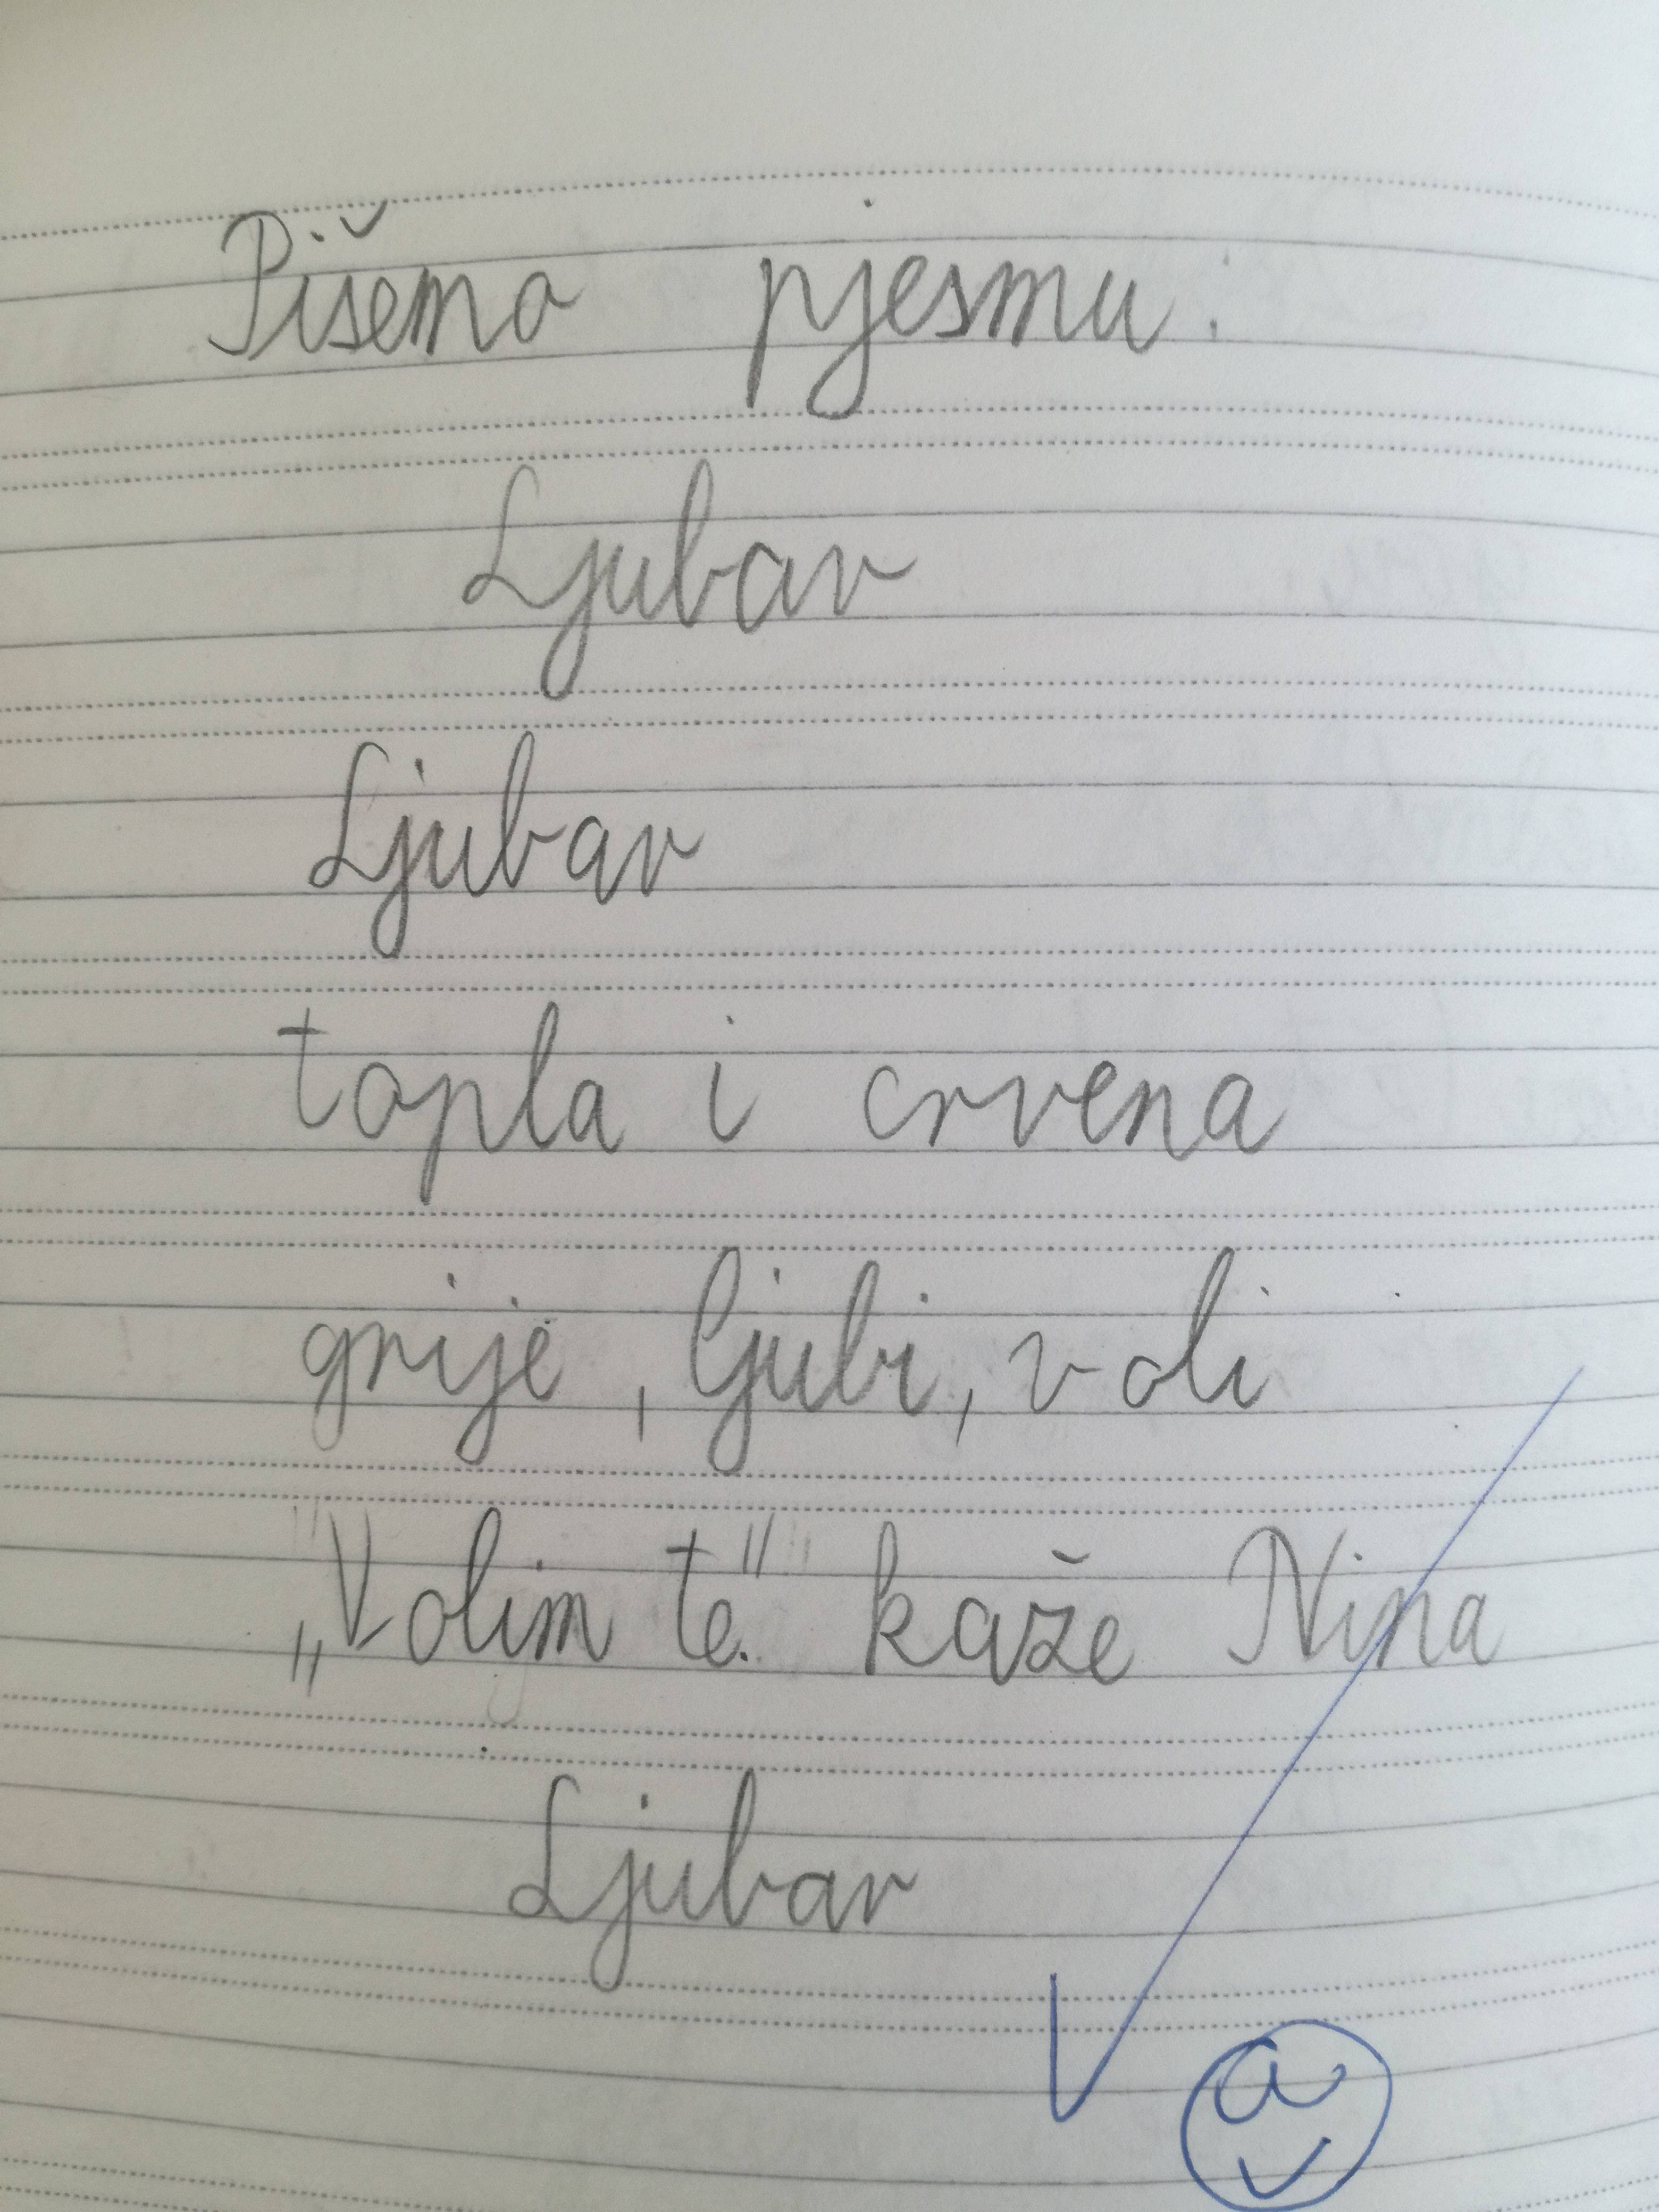 Pišemo pjesmu.
Ljubav
Ljubav
topla i crvena
grije, ljubi, voli
„Volim te." kaže Nina
Ljubav